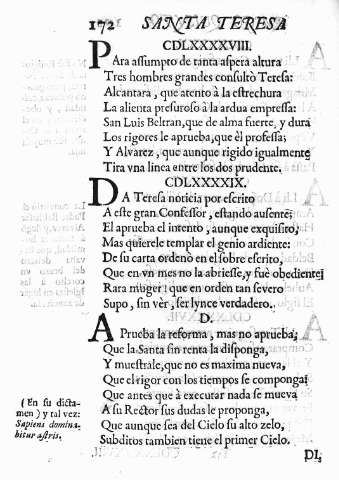 172 SANTA TERESA
CDLXXXXVIII.
PAra assumpto de tanta aspera altura
Tres hombres grandes consultò Teresa:
Alcantara, que atento à la estrechura
La alienta presuroso à la ardua empressa:
San Luis Beltran, que de alma fuerte, y dura
Los rigores le aprueba, que èl professa;
Y Alvarez, que aunque rigido igualmente
Tira vna linea entre los dos prudente.
CDLXXXXIX.
DA Teresa noticia por escrito
A este gran Confessor, estando ausente;
El aprueba el intento, aunque exquisito,
Mas quierele templar el genio ardiente:
De su carta ordenò en el sobre escrito,
Que en vn mes no la abriesse, y fuè obediente;
Rara muger! que en orden tan severo
Supo, sin vèr, ser lynce verdadero.
D.
APrueba la reforma, mas no aprueba,
Que la Santa sin renta la disponga,
Y muestrale, que no es maxima nueva,
Que el rigor con los tiempos se componga:
Que antes que à executar nada se mueva
A su Rector sus dudas le proponga,
Que aunque sea del Cielo su alto zelo,
Subditos tambien tiene el primer Cielo.
(En su dicta-
men) y tal vez:
Sapiens domina-
bitur astris.
DI.